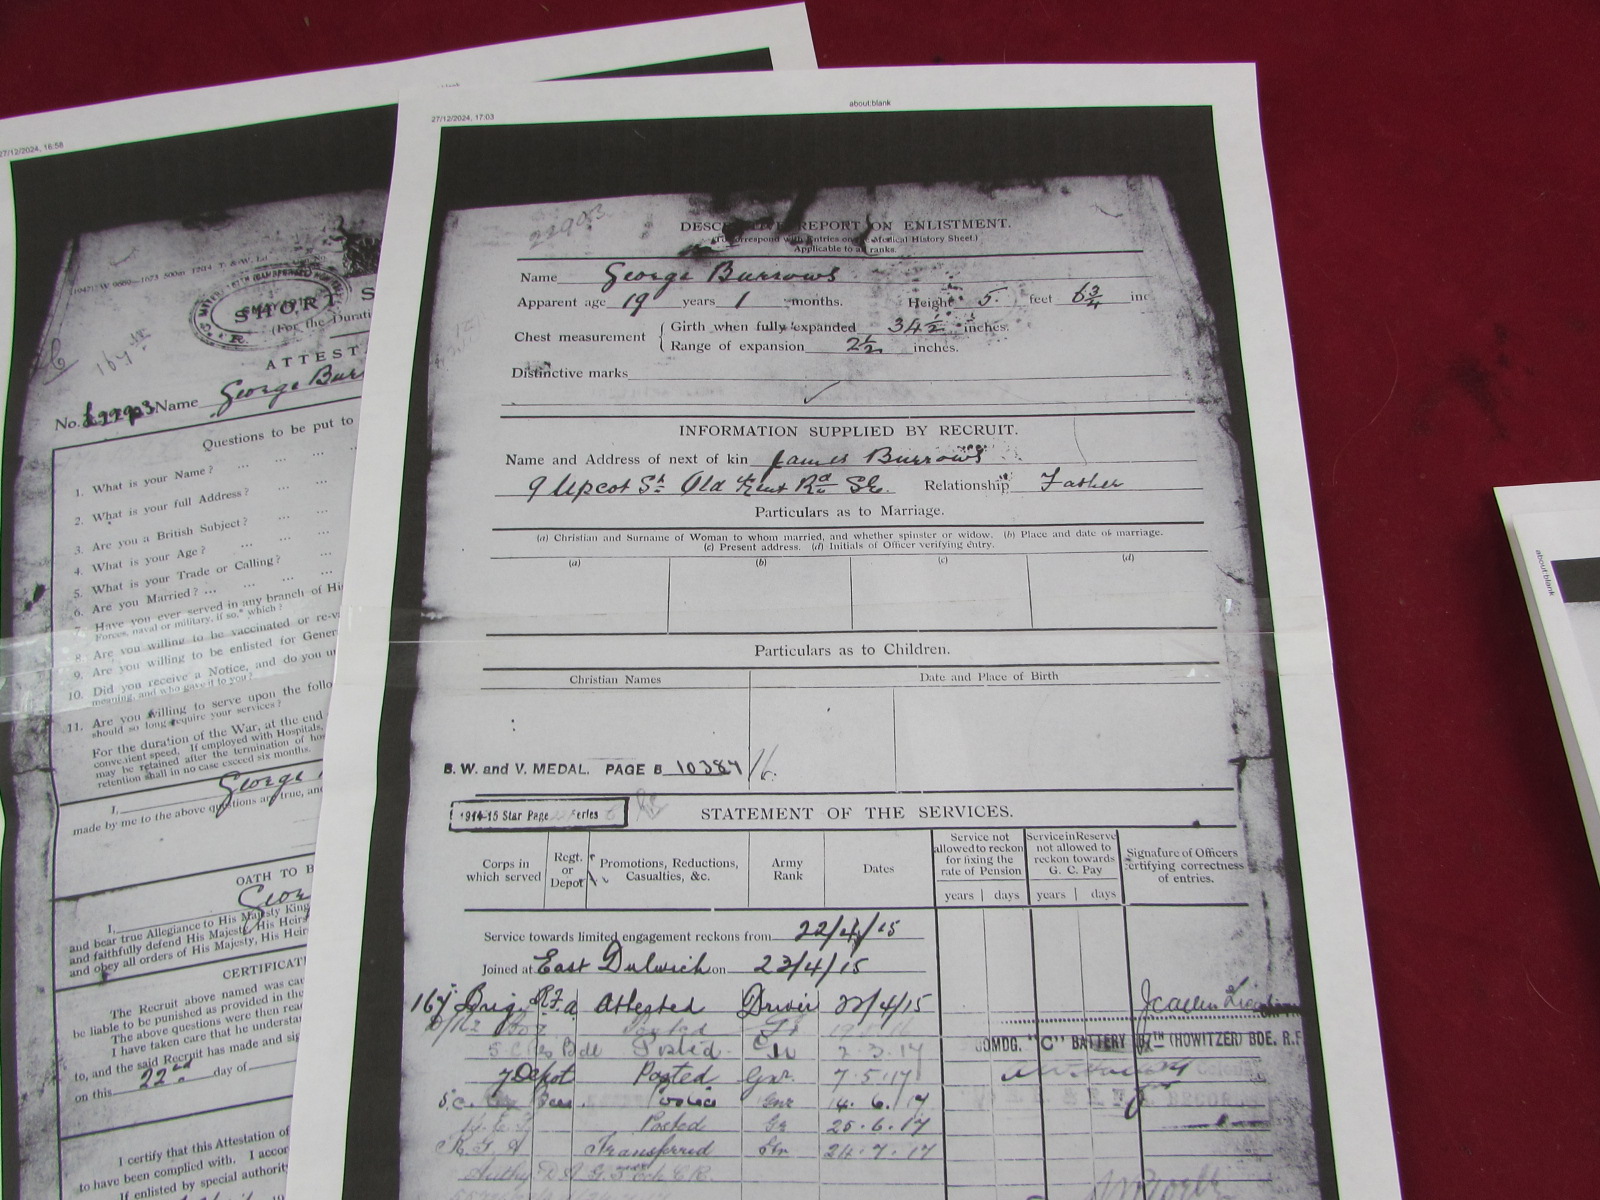 27/12/2024, 16:58
SHORT S
(For the Durati
ATTEST
No. Name George Burr
Questions to be put to
1. What is your Name? ... ... ...
2. What is your full Address? ... ...
3. Are you a British Subject? ... ...
4. What is your Age? ... ... ...
5. What is your Trade or Calling? ...
6. Are you Married? ... ... ... ...
7. Have you ever served in any branch of His
Forces, naval or military, if so,* which?
8. Are you willing to be vaccinated or re-va
9. Are you willing to be enlisted for Gener
10. Did you receive a Notice, and do you un
meaning, and who gave it to you?
11. Are you willing to serve upon the follo
should so long require your services?
For the duration of the War, at the end
convenient speed. If employed with Hospitals,
may be retained after the termination of hos
retention shall in no case exceed six months.
I, George
made by me to the above questions are true, and
OATH TO B
I, Geor
and bear true Allegiance to His Majesty King
and faithfully defend His Majesty, His Heirs
and obey all orders of His Majesty, His Heirs
CERTIFICAT
The Recruit above named was cau
be liable to be punished as provided in the
The above questions were then rea
I have taken care that he understa
to, and the said Recruit has made and sig
on this 22nd day of
I certify that this Attestation of
to have been complied with. I accor
If enlisted by special authority
27/12/2024, 17:03 about:blank
22903
DESC REPORT ON ENLISTMENT.
(To correspond with Entries on the Medical History Sheet.)
Applicable to all ranks.
Name George Burrows
Apparent age 19 years 1 months. Height 5. feet 6 3/4 inc
Chest measurement { Girth when fully expanded 34 1/2 inches.
Range of expansion 2 1/2 inches.
Distinctive marks
INFORMATION SUPPLIED BY RECRUIT.
Name and Address of next of kin James Burrows
9 Upcot St. Old Kent Rd SE. Relationship Father
Particulars as to Marriage.
(a) Christian and Surname of Woman to whom married, and whether spinster or widow. (b) Place and date of marriage.
(c) Present address. (d) Initials of Officer verifying entry.
(a) (b) (c) (d)
Particulars as to Children.
Christian Names Date and Place of Birth
B. W. and V. MEDAL. PAGE B 10384
1914-15 Star Page Series
STATEMENT OF THE SERVICES.
Corps in which served Regt. or Depot Promotions, Reductions, Casualties, &c. Army Rank Dates Service not allowed to reckon for fixing the rate of Pension Service in Reserve not allowed to reckon towards G. C. Pay Signature of Officers certifying correctness of entries.
years days years days
Service towards limited engagement reckons from 22/4/15
Joined at East Dulwich on 23/4/15
167 Brig. R.F.A Attested Driver 22/4/15
Posted
COMDG. "C" BATTERY (HOWITZER) BDE. R.F
Posted 2.3.17
Depot Posted Gnr. 7.5.17
Gnr 14.6.17
RECORDS
Posted Gr 25.6.17
R.G.A Transferred Gnr 24.7.17
about:blank